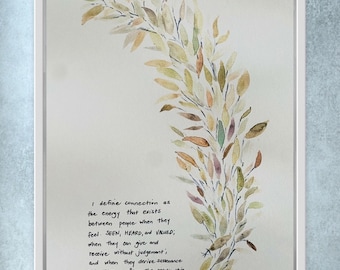 I define connection as
the energy that exists
between people when they
feel SEEN, HEARD, and VALUED;
when they can give and
receive without judgement;
and when they derive sustenance